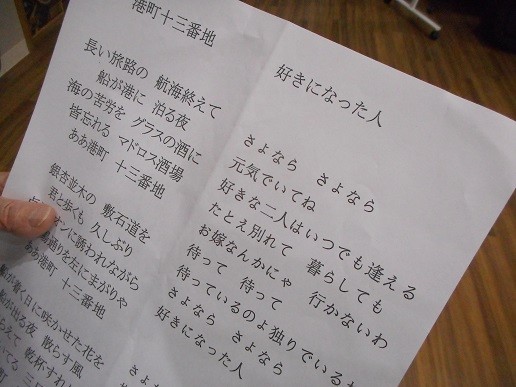 港町十三番地
長い旅路の 航海終えて
船が港に 泊る夜
海の苦労を グラスの酒に
皆忘れる マドロス酒場
ああ港町 十三番地
銀杏並木の 敷石道を
君と歩くも 久しぶり
オンに誘われながら
通りを左にまがりゃ
ああ港町 十三番地
船が着く日に 咲かせた花を
船が出る夜 散らす風
乾杯すれ
好きになった人
さよなら さよなら
元気でいてね
好きな二人はいつでも逢える
たとえ別れて 暮らしても
お嫁なんかにゃ 行かないわ
待って 待って
待っているのよ独りでいる
さよなら さよなら
好きになった人
さ